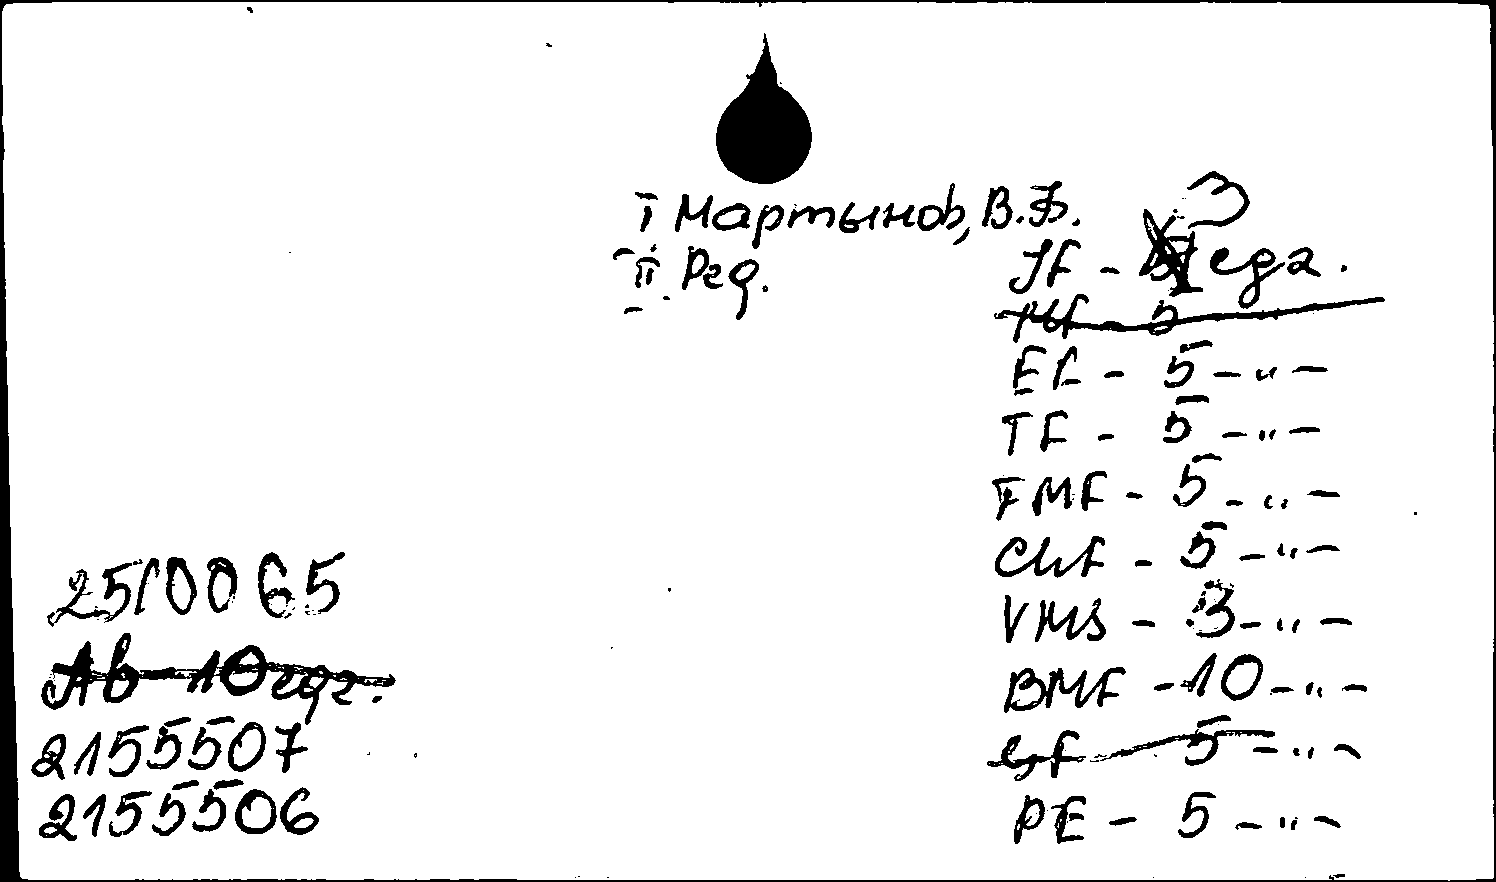 I Мартынов, В.Ф.
II. Рец.
3
JF - egz.
EF - 5 - " -
TF - 5 - " -
FMF - 5 - " -
ChF - 5 - " -
VMS - 3 - " -
BMF - 10 - " -
5 - " -
PE - 5 - " -
25/0065
Ab - 10 egz.
2155507
2155506